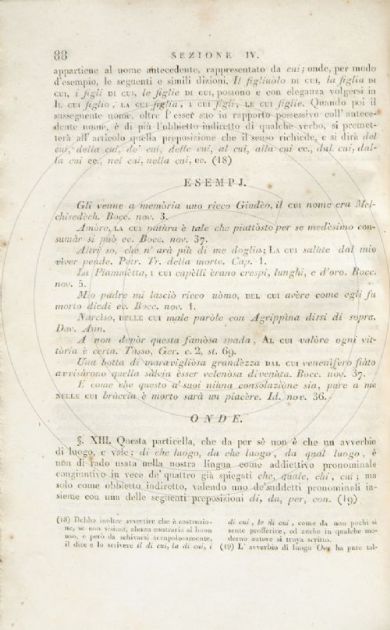 88 SEZIONE IV.
appartiene al nome antecedente, rappresentato da cui; onde, per modo
d'esempio, le seguenti o simili dizioni. Il figliuòlo DI CUI, la figlia DI
CUI, i figli DI CUI, le figlie DI CUI, possono e con eleganza volgersi in
IL CUI figlio, LA CUI figlia, I CUI figli, LE CUI figlie. Quando poi il
susseguente nome, oltre l'esser suo in rapporto possessivo coll' antece-
dente nome, è di più l'obbietto indirètto di qualche verbo, si premet-
terà all' articolo quella preposizione che il senso richiede, e si dirà del
cui, della cui, de' cui, delle cui, al cui, alla cui ec., dal cui, dal-
la cui ec., nel cui, nella cui, ec. (18)
ESEMPJ.
Gli venne a memòria uno ricco Giudèo, il CUI nome era Mel-
chisedèch. Bocc. nov. 3.
Amòre, LA CUI natùra è tale che piuttòsto per se medèsimo con-
sumàr si può ec. Bocc. nov. 37.
Altri so, che n' avrà più di me doglia; LA CUI salùte dal mio
viver pende. Petr. Tr. della morte. Cap. 1.
La Fiammètta, I CUI capèlli èrano crespi, lunghi, e d'oro. Bocc.
nov. 5.
Mio padre mi lasciò ricco uòmo, DEL CUI avère come egli fu
morto diedi ec. Bocc. nov. 1.
Narciso, DELLE CUI male paròle con Agrippìna dirsi di sopra.
Dav. Ann.
A non depòr questa famòsa spada, AL CUI valòre ogni vit-
tòria è certa. Tasso. Ger. c. 2, st. 69.
Una botta di maravigliòsa grandèzza DAL CUI venenìfero fiàto
avvisàrono quella sàlvia èsser velenòsa divenùta. Bocc. nov. 37.
E come che questo a' suoi niùna consolaziòne sia, pure a me
NELLE CUI bràccia è morto sarà un piacère. Id. nov. 36.
ONDE.
§. XIII. Questa particella, che da per sè non è che un avverbio
di luogo, e vale: di che luogo, da che luogo, da qual luogo, è
non di rado usata nella nostra lingua come addiettivo pronominale
congiuntivo in vece de' quattro già spiegati che, quale, chi, cui; ma
solo come obbietto indirètto, valendo uno de'suddetti pronominali in-
sieme con una delle seguenti preposizioni di, da, per, con. (19)
(18) Debbo inoltre avvertire che è costruzio-
ne, se non viziosa, almeno contraria al buon
uso, e però da schivarsi scrupolosamente,
il dire e lo scrivere il di cui, la di cui, i
di cui, le di cui, come da non pochi si
sente profferire, ed anche in qualche mo-
derno autore si trova scritto.
(19) L' avverbio di luogo Ove ha pure tal-